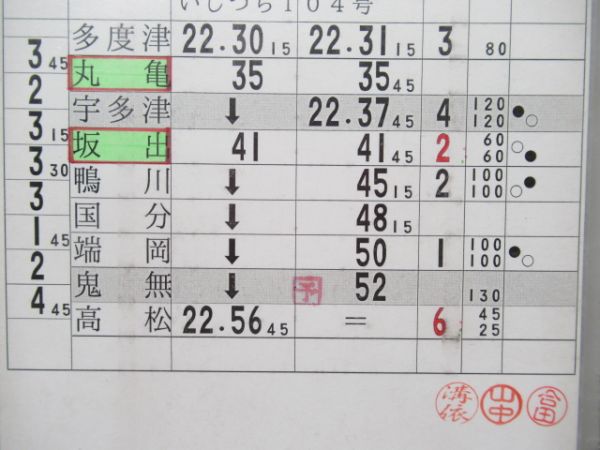 いしづち104号
多度津 22.30 15 22.31 15 3 80
3 45
丸亀 35 35 45
2
宇多津 ↓ 22.37 45 4 120 120 ●○
3 15
坂出 41 41 45 2 60 60 ○●
3 30
鴨川 ↓ 45 15 2 100 100 ○●
3
国分 ↓ 48 15
1 45
端岡 ↓ 50 1 100 100 ●○
2
鬼無 ↓ 予 52 130
4 45
高松 22.56 45 = 6 45 25
溝依 山中 富